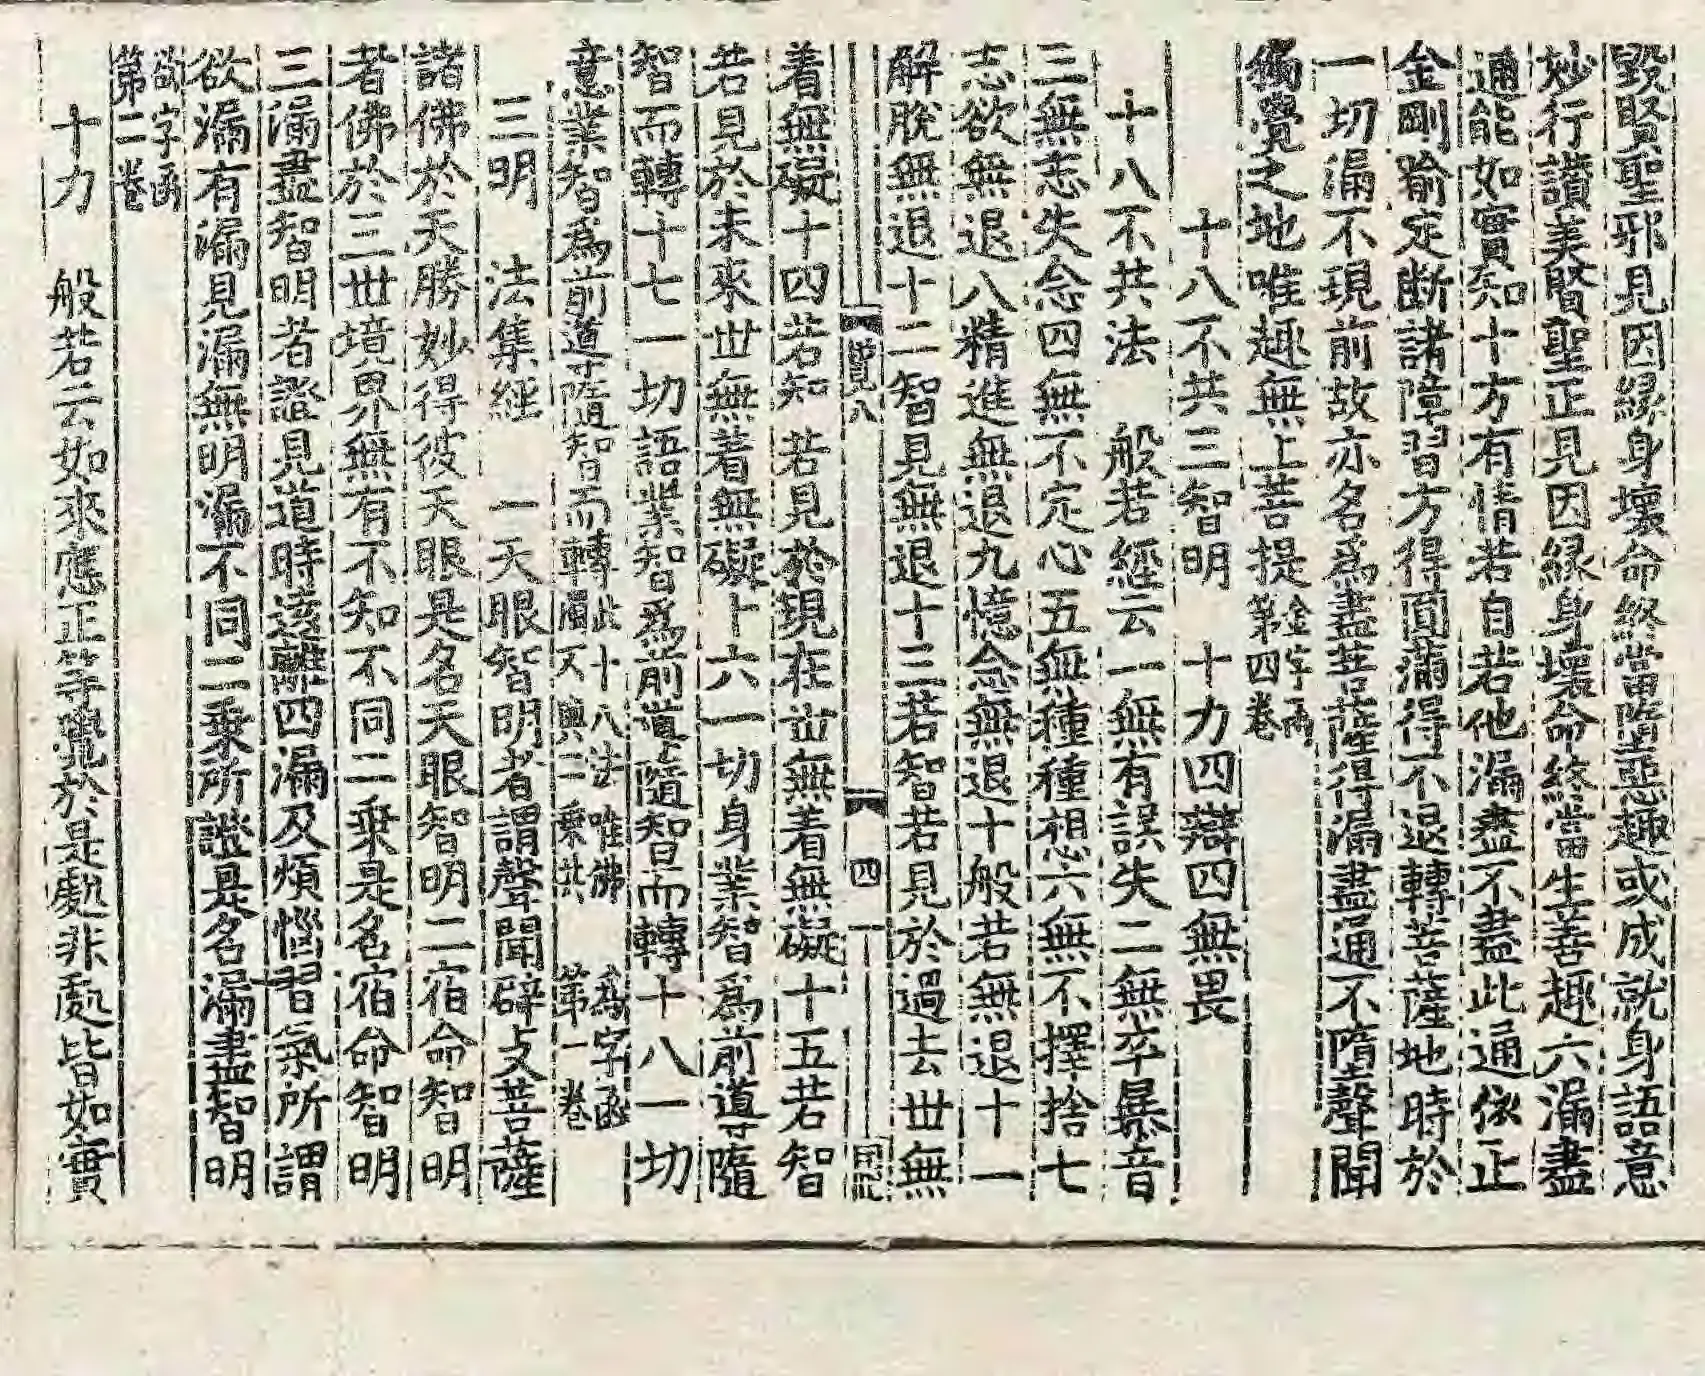 毀賢聖邪見因緣身壞命終當墮惡趣或成就身語意
妙行讚美賢聖正見因緣身壞命終當生善趣六漏盡
通能如實知十方有情若自若他漏盡不盡此通依正
金剛喻定斷諸障習方得圓滿得不退轉菩薩地時於
一切漏不現前故亦名爲盡菩薩得漏盡通不墮聲聞
獨覺之地唯趣無上菩提金字函
第四卷
十八不共三智明 十力四辯四無畏
十八不共法 般若經云一無有誤失二無卒暴音
三無忘失念四無不定心五無種種想六無不擇捨七
志欲無退八精進無退九憶念無退十般若無退十一
解脫無退十二智見無退十三若智若見於過去世無
覽八 四
着無礙十四若知 若見於現在世無着無礙十五若智
若見於未來世無着無礙十六一切身業智爲前導隨
智而轉十七一切語業智爲前導隨智而轉十八一切
意業智爲前導隨智而轉此十八法唯佛 爲字函
獨不與二乘共 第一卷
三明 法集經 一天眼智明者謂聲聞辟支菩薩
諸佛於天勝妙得彼天眼是名天眼智明二宿命智明
者佛於三世境界無有不知不同二乘是名宿命智明
三漏盡智明者證見道時遠離四漏及煩惱習氣所謂
欲漏有漏見漏無明漏不同二乘所證是名漏盡智明
欲字函
第二卷
十力 般若云如來應正等覺於是處非處皆如實